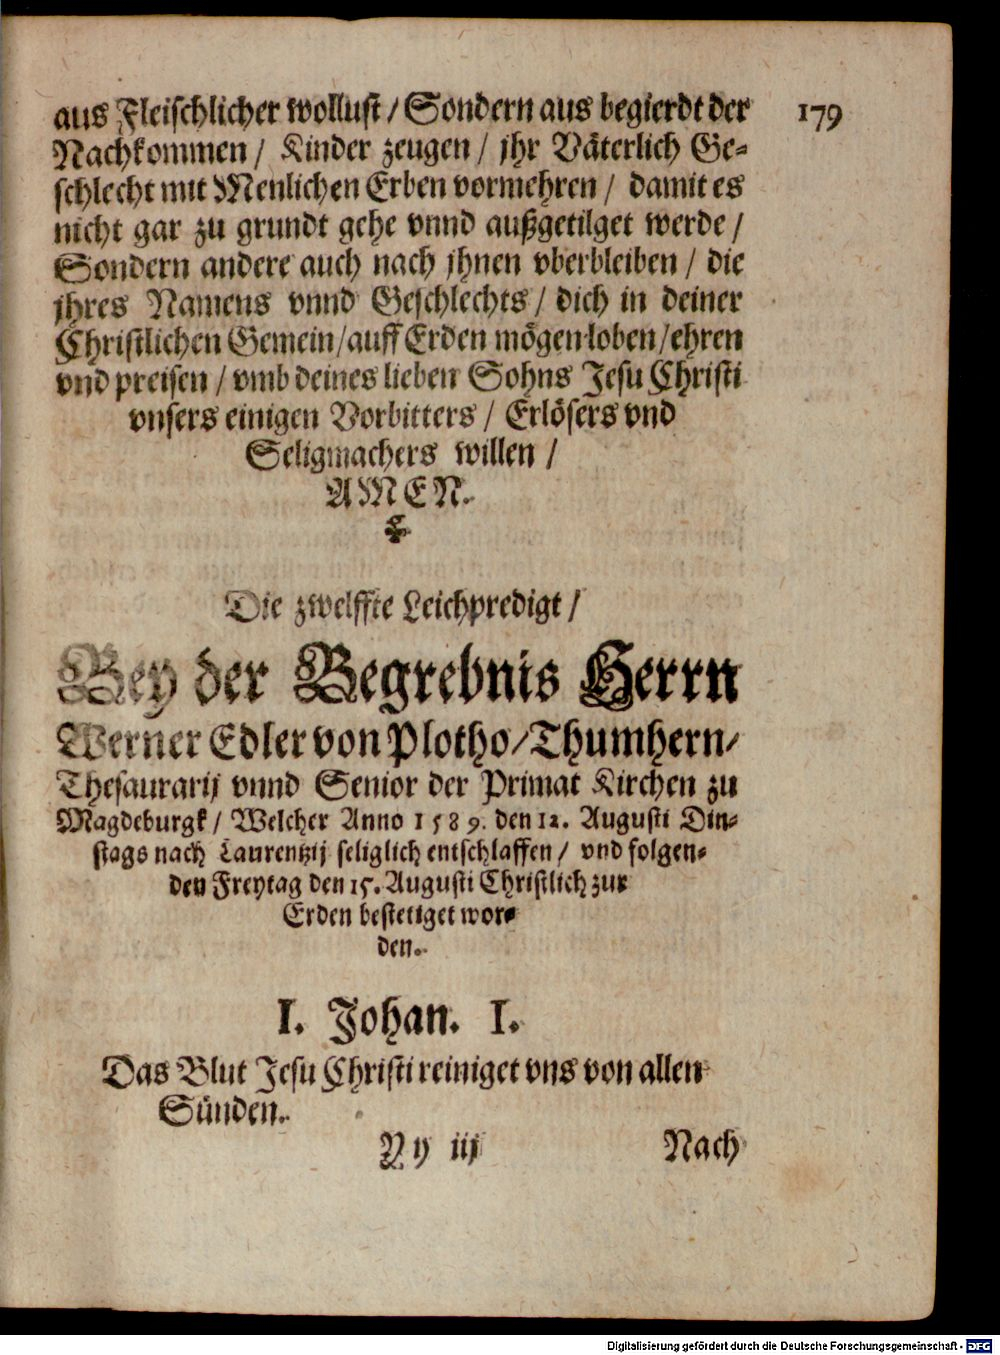 aus Fleischlicher wollust / Sondern aus begierdt der
179
Nachkommen / Kinder zeugen / jhr Väterlich Ge-
schlecht mit Menlichen Erben vormehren / damit es
nicht gar zu grundt gehe vnnd außgetilget werde /
Sondern andere auch nach jhnen vberbleiben / die
jhres Namens vnnd Geschlechts / dich in deiner
Christlichen Gemein / auff Erden mögen loben / ehren
vnd preisen / vmb deines lieben Sohns Jesu Christi
vnsers einigen Vorbitters / Erlösers vnd
Seligmachers willen /
AMEN.
Die zwelffte Leichpredigt /
Bey der Begrebnis Herrn
Werner Edler von Plotho / Thumhern /
Thesaurarij vnnd Senior der Primat Kirchen zu
Magdeburgk / Welcher Anno 1589. den 12. Augusti Din-
stags nach Laurentzij seliglich entschlaffen / vnd folgen-
den Freytag den 15. Augusti Christlich zur
Erden bestetiget wor-
den.
I. Johan. I.
Das Blut Jesu Christi reiniget vns von allen
Sünden.
Yy iij
Nach
Digitalisierung gefördert durch die Deutsche Forschungsgemeinschaft - DFG